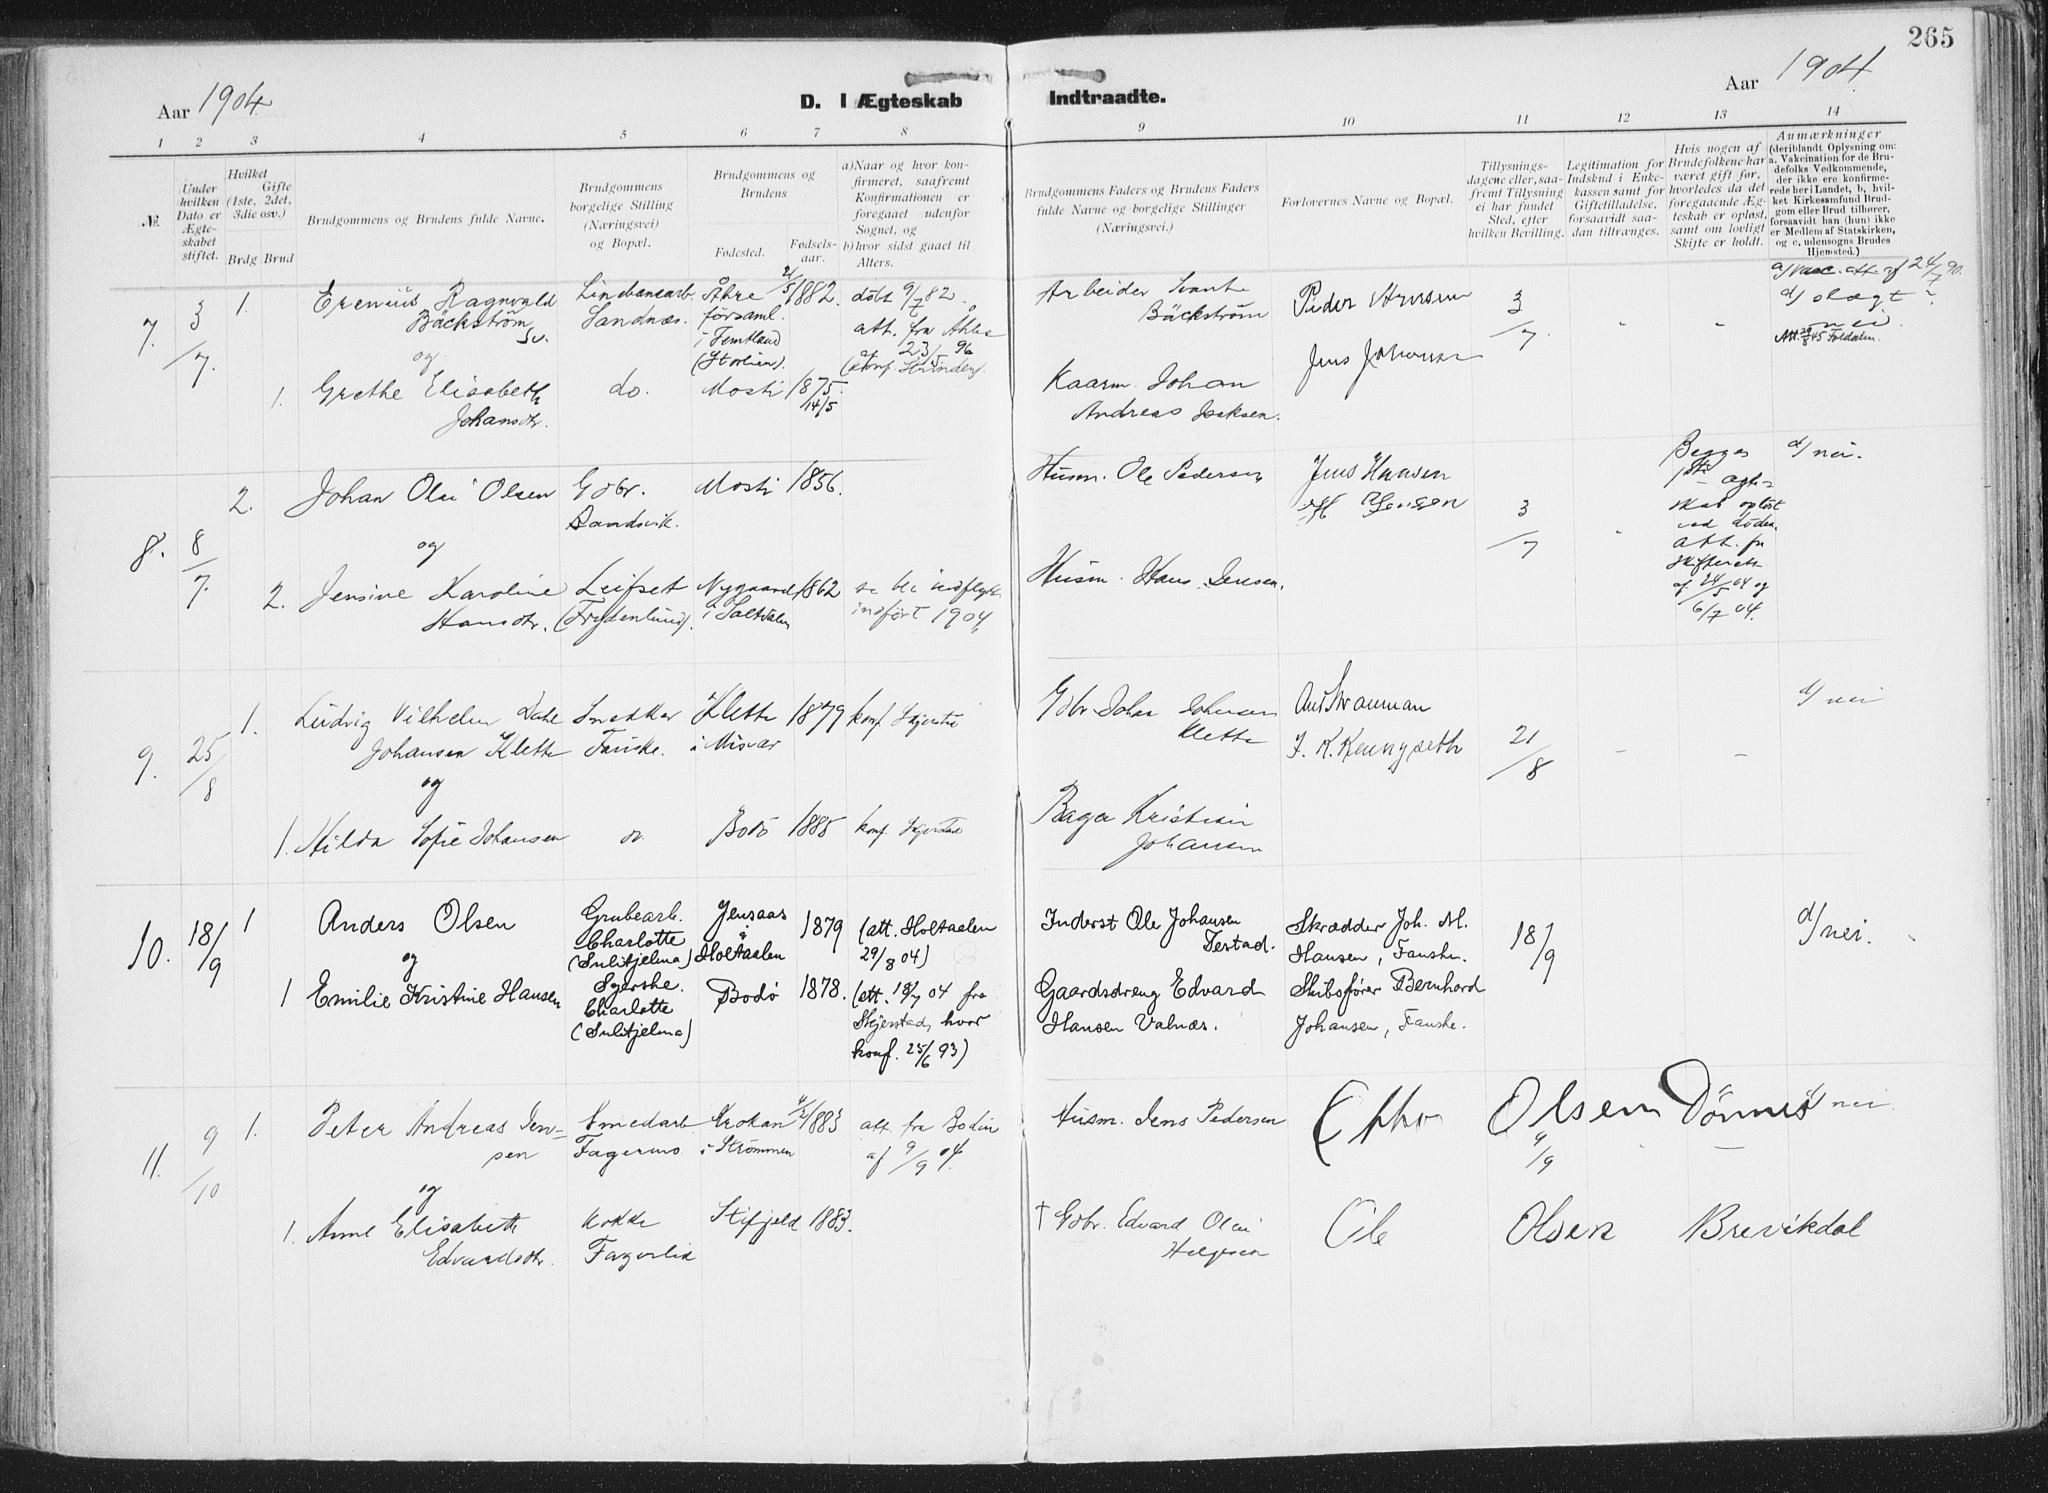 265
Aar 1904
D. I Ægteskab Indtraadte.
Aar 1904
1 2 3 4 5 6 7 8 9 10 11 12 13 14
№
Under hvilken Dato er Ægteskabet stiftet.
Hvilket Gifte (1ste, 2det, 3die osv.)
Brdg Brud
Brudgommens og Brudens fulde Navne.
Brudgommens borgelige Stilling (Næringsvei) og Bopæl.
Brudgommens og Brudens
Fødested.
Fødsels-aar.
a) Naar og hvor konfirmeret, saafremt Konfirmationen er foregaaet udenfor Sognet, og
b) hvor sidst gaaet til Alters.
Brudgommens Faders og Brudens Faders fulde Navne og borgelige Stillinger (Næringsvei.)
Forlovernes Navne og Bopæl.
Tillysningsdagene eller, saafremt Tillysning ei har fundet Sted, efter hvilken Bevilling.
Legitimation for Indskud i Enkekassen samt for Giftetilladelse, forsaavidt saadan tiltrænges.
Hvis nogen af Brudefolkene har været gift før, hvorledes da det foregaaende Ægteskab er opløst, samt om lovligt Skifte er holdt.
Anmærkninger (deriblandt Oplysning om: a. Vakcination for de Brudefolks Vedkommende, der ikke ere konfirmerede her i Landet, b. hvilket Kirkesamfund Brudgom eller Brud tilhører, forsaavidt han (hun) ikke er Medlem af Statskirken, og c. udensogns Brudes Hjemsted.)
7. 3/7. 1. Erenius Ragnvald Bäckström
og
Linebanearb. Sandnæs.
Åhre församl. i Jemtland (Storlien).
21/5 1882.
døbt 9/7 82.
att. fra Åhre af 23/5 96
Arbeider Svante Bäckström
Peder Hansen
3/7.
a) vacc. att. af 24/7 90.
d) slægt? nei.
1. Grethe Elisabeth Johansdtr.
do.
Mosti 1875. 14/5
Kaarm. Johan Andreas Isaksen.
Jens Johansen
8. 8/7. 2. Johan Olai Olsen
og
Gdbr. Sandsvik.
Mosti 1856.
Husm. Ole Pedersen
Jens Hansen
H Jensen
3/7
Begges 1ste ægteskab opløst ved døden. att. fra skifterett af 24/5 04 og 6/7 04.
d) nei.
2. Jensine Karoline Hansdtr.
Leifset (Frydenlund).
Nygaard i Saltdalen
1862
se bl. indflytt. indført 1904.
Husm. Hans Jensen.
9. 25/8 1. Ludvig Vilhelm Dahl Johansen Klette
og
Snekker Fauske.
Klette i Misvær
1879
konf. Skjerstad
Gdbr. Johan Johnsen Klette
Ant Strauman
J. K. Kenngseth
21/8
d) nei
1. Hilda Sofie Johansen
do.
Bodø 1885
konf. Skjerstad
Bager Kristian Johansen
10. 18/9 1 Anders Olsen
og
Grubearb. Charlotte (Sulitjelma)
Jensaas i Holtaalen
1879
(att. Holtaalen 29/8 04)
Inderst Ole Johansen Testad.
Skrædder Joh. M. Hansen, Fauske.
18/9
d/ nei.
1 Emilie Kristine Hansen
Syerske. Charlotte (Sulitjelma)
Bodø 1878.
(att. 18/7 04 fra Skjerstad, hvor konf. 25/6 93)
Gaardsdreng Edvard Hansen Valnæs.
Skibsfører Bernhard Johansen, Fauske.
11. 9/10 1. Peter Andreas Jensen
og
Smedarb. Fagermo
Krokan i Strømmen
1883
att. fra Bodin af 9/9 04.
Husm. Jens Pedersen
Otto Olsen Dönnes
9/9
d) nei
1. Anne Elisabeth Edvardsdtr.
Kokke Fagerlia
Stifjeld 1883.
† Gdbr. Edvard Olai Helgesen
Ole Olsen Brevikdal